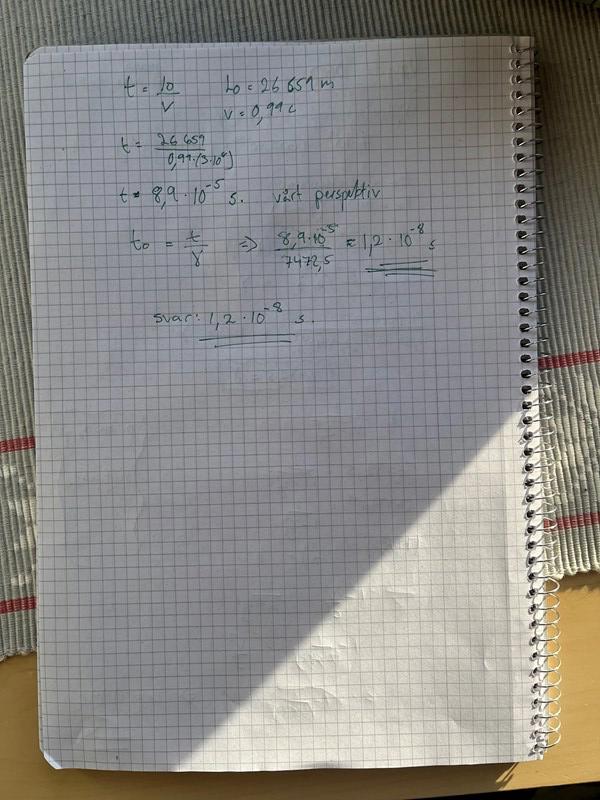 t = l0/v L0 = 26 659 m
v = 0,99 c
t = 26 659/0,99·(3·10⁸)
t = 8,9 · 10⁻⁵ s. vårt perspektiv
t₀ = t/γ => 8,9·10⁻⁵/7472,5 = 1,2 · 10⁻⁸ s
svar: 1,2 · 10⁻⁸ s.